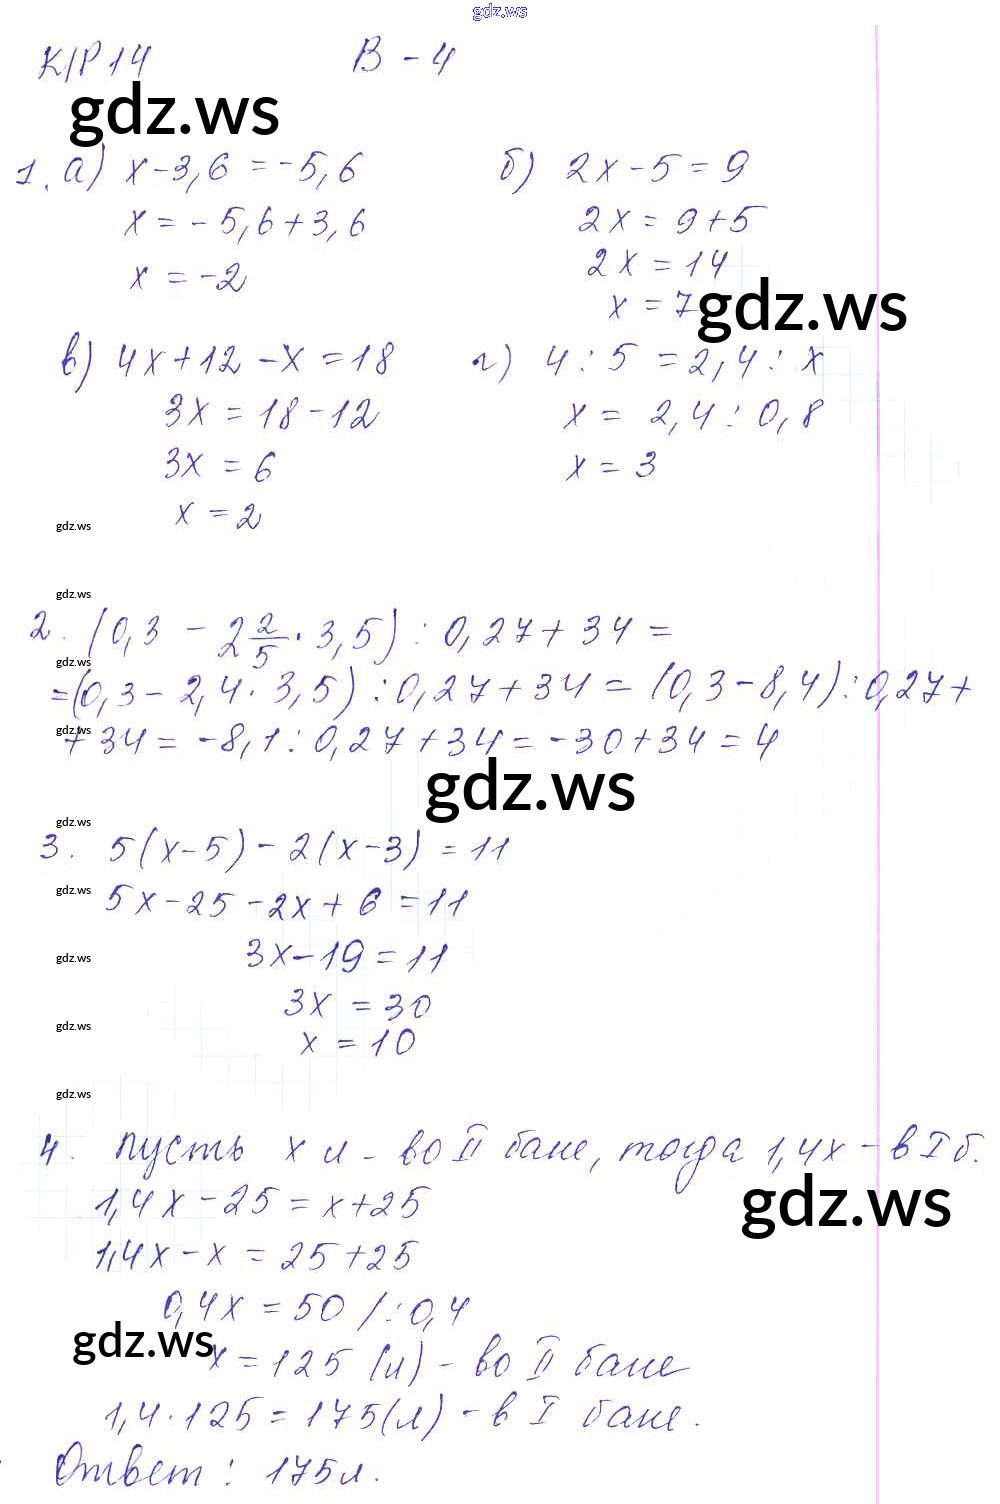 gdz.ws
К/Р 14 В - 4
gdz.ws
1. а) x - 3,6 = -5,6 б) 2x - 5 = 9
x = - 5,6 + 3,6 2x = 9 + 5
x = -2 2x = 14
x = 7
gdz.ws
в) 4x + 12 - x = 18 г) 4 : 5 = 2,4 : x
3x = 18 - 12 x = 2,4 : 0,8
3x = 6 x = 3
x = 2
gdz.ws
gdz.ws
2. (0,3 - 2 2/5 · 3,5) : 0,27 + 34 =
gdz.ws
= (0,3 - 2,4 · 3,5) : 0,27 + 34 = (0,3 - 8,4) : 0,27 +
gdz.ws
+ 34 = -8,1 : 0,27 + 34 = -30 + 34 = 4
gdz.ws
gdz.ws
3. 5(x-5) - 2(x-3) = 11
gdz.ws
5x - 25 - 2x + 6 = 11
gdz.ws
3x - 19 = 11
3x = 30
gdz.ws
x = 10
gdz.ws
4. пусть x л - во II баке, тогда 1,4x - в I б.
gdz.ws
1,4x - 25 = x + 25
1,4x - x = 25 + 25
0,4x = 50 / : 0,4
gdz.ws
x = 125 (л) - во II баке
1,4 · 125 = 175 (л) - в I баке.
Ответ : 175 л.